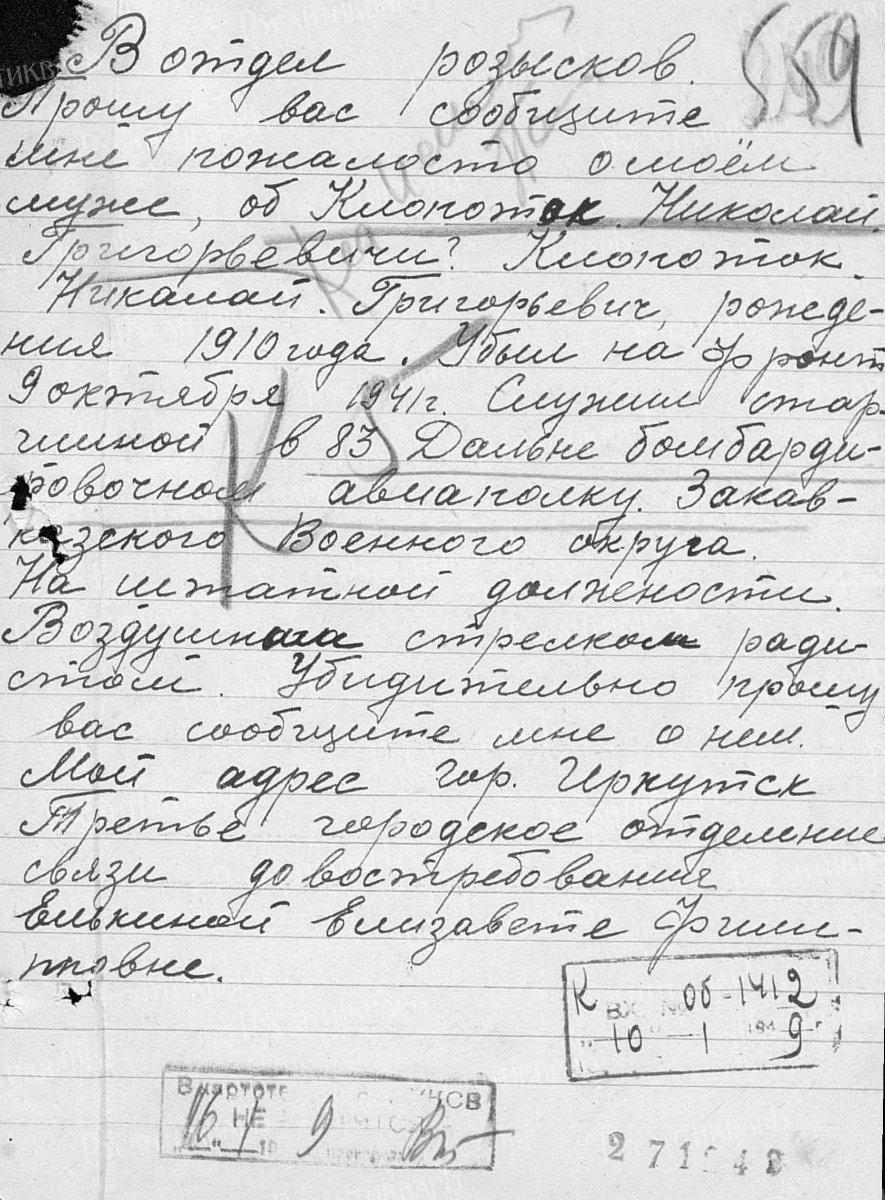 В отдел розысков. 559
Прошу вас сообщите
мне пожалосто о моём
муже, об Клокоток. Николай.
Григорьевичи? Клокоток.
Никалай. Григорьевич, рожде-
ния 1910 года. Убыл на фронт
9 октября 1941 г. Служил стар-
шиной в 83 Дальне бомбарди-
ровочном авиаполку. Закав-
казского Военного округа.
На штатной должености.
Воздушном стрелком ради-
стом. Убидительно прошу
вас сообщите мне о нем.
Мой адрес гор. Иркутск
Третье городское отделение
связи довостребования
Елькиной Елизавете Фили-
пповне.
К об-1412
ВХ. №
"10" 1 1949 г
В картоте
НЕ
16/1 9